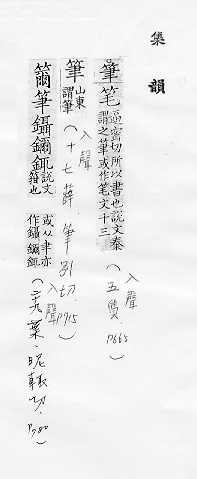 集韻
筆笔逼密切所以書也說文秦
謂之筆或作笔文十三
(入聲 五質. P665)
筆山東
謂筆(入聲 十七薛 筆別切. P715)
籋筆鑷鑈鉔說文
箝也 或从聿亦
作鑷鑈鉔
(入聲 二十九葉.昵輒切. P780)